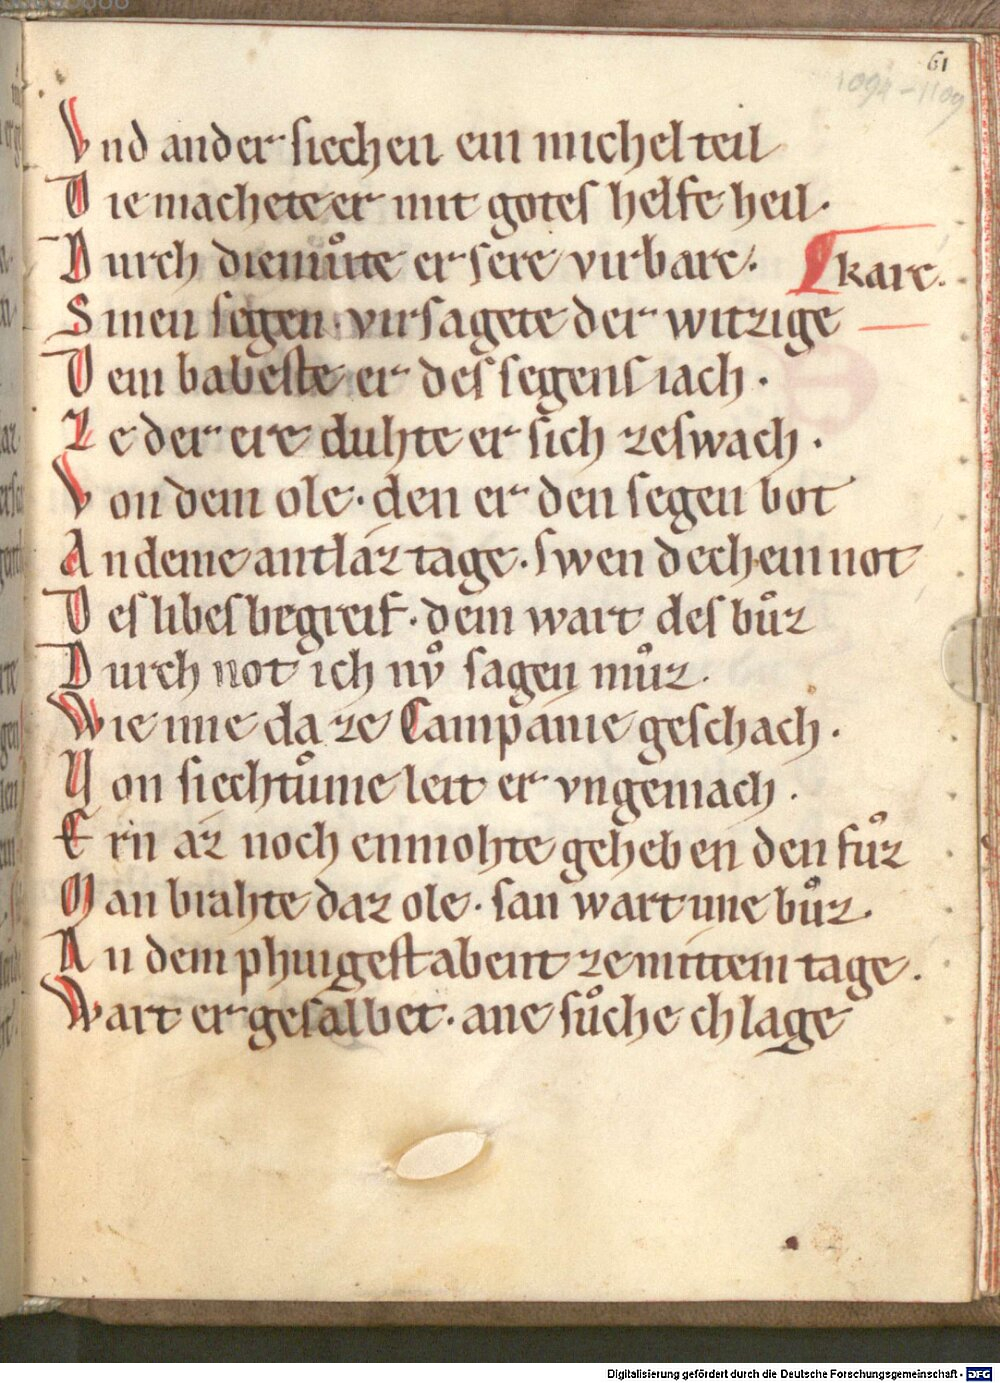 61
1094-1109
Vnd ander siechen ein michel teil
Die machete er mit gotes helfe heil·
Durch diemuͦte er sere virbare·
kare·
Sinen segen· virsagete der witzige
Dem babeste er des segens iach·
Ze der ere duhte er sich ze swach·
Von dem ole· den er den segen bot
An deme antlaz tage· swen dechein not
Des libes begreif· dem wart des buͦz
Durch not ich nv̊ sagen muͦz·
Wie ime da ze Campanie geschach·
Von siechtuͦme leit er vngemach·
Ern az noch enmohte geheben den fuͦz
Man brahte daz ole· san wart ime buͦz·
An dem phingestabent ze mittem tage·
Wart er gesalbet· ane suͦche chlage
Digitalisierung gefördert durch die Deutsche Forschungsgemeinschaft - DFG